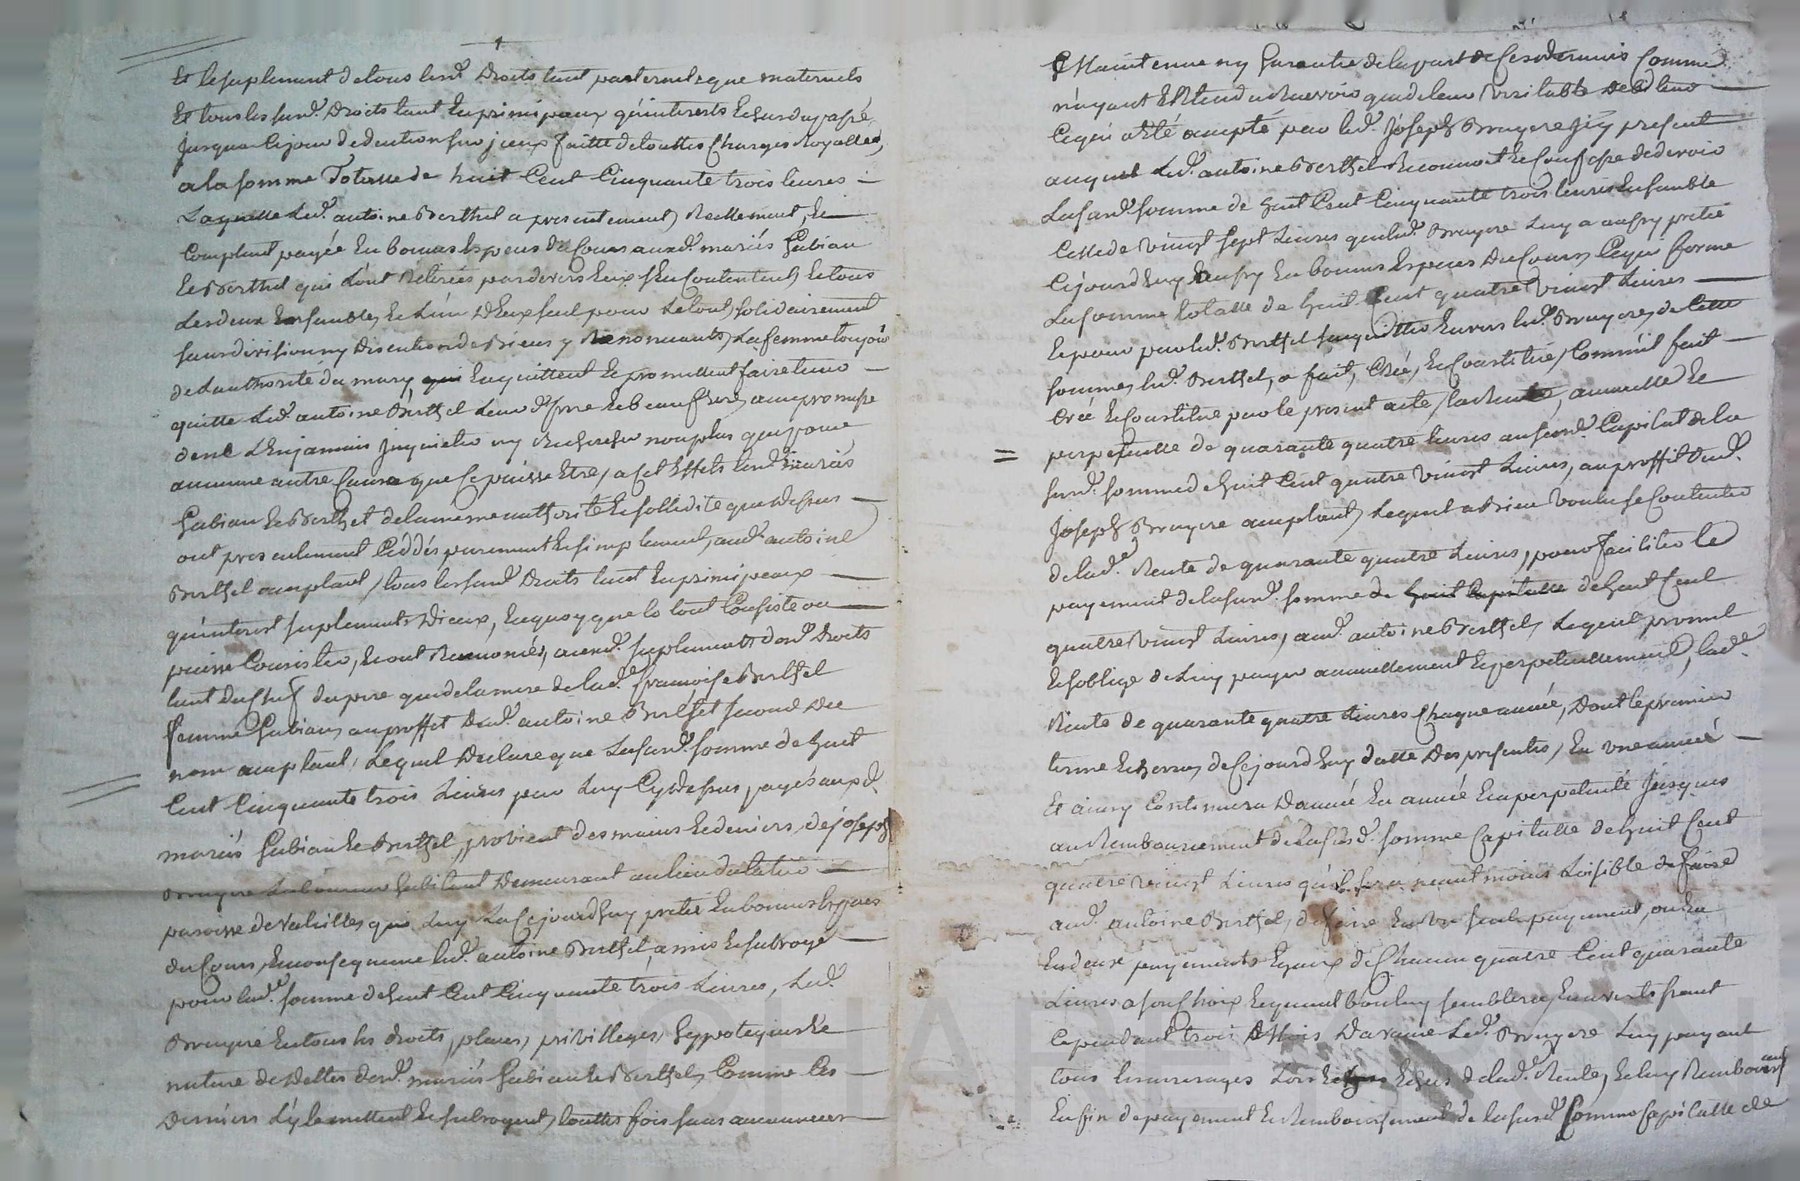 Et le suplement de tous lesd. Droits tant paternels que maternels
Et tous les susd. Droits tant En principaux qu'interests Echus du passé
Jusqua Ce jour deduction sur iceux faitte de touttes Charges Royalles,
a la somme Totalle de huit Cent Cinquante trois livres
Laquelle Led. antoine Berthet a presentement, Reellement, Et
Comptant payée En bonnes Especes du Cours auxd. mariés Gabian
Et Berthet qui Lont Retirée pardevers Eux s'En Contentent, Et tous
Les deux Ensembles, Et L'un D'Eux seul pour Le tout, solidairement
sans division ny Discution de Biens y Renonceants, La femme toujours
de L'authorité du mary, Enquittent Et promettent faire tenir
quitte Led. antoine Berthet Leur frere Et beau frere, avec promesse
de ne L'En jamais Inquieter ny Rechercher non plus que pour
aucunne autre Cause que Ce puisse Etre, a Cet Effet Lesd. mariés
Gabian Et Berthet de la meme authorité Et sollidité que dessus
ont presentement Ceddés purement Et simplement, aud. antoine
Berthet acceptant, tous les susd. Droits tant En principaux
qu'interest suplements D'iceux, En quoy que le tout Consiste ou
puisse Consister, Et ont Renoncés, a tous suplements desd. Droits
tant du Chef du pere que de la mere de lad. francoise Berthet
femme Gabian, au proffit Dud. antoine Berthet second Du
nom acceptant, Lequel Declare que La susd. somme de huit
Cent Cinquante trois Livres par Luy Cy Dessus payée auxd.
mariés Gabian Et Berthet, provient des mains Et deniers, de joseph
Bruyere Laboureur habitant Demeurant au lieu
paroisse de Valeilles qui Luy La Cejourdhuy pretée En bonnes Especes
du Cours, En consequence led. antoine Berthet, a mis Et subrogé
pour lad. somme de huit Cent Cinquante trois Livres, Led.
Bruyere En tous les droits, places, privilleges, hyppoteques Et
nature de Dettes desd. mariés Gabian Et Berthet, Comme Ces
Derniers L'y Mettent Et subrogent, touttes fois sans aucunne
Maintenue ny Garentie de la part de Ces derniers Comme
n'ayant Entendu Recevoir que de leur Veritable debiteur
Ce qui a Eté accepté par led. Joseph Bruyere Icy present
auquel Led. antoine Berthet Reconnoit Et Confesse de devoir
La susd. somme de huit Cent Cinquante trois livres Ensemble
Celle de vingt sept Livres que led. Bruyere Luy a aussy pretée
Cejourdhuy aussy En bonnes Especes Du Cours, Ce qui forme
La somme totalle de huit Cent quatre vingt Livres
Et pour par led. Berthet s'acquitter Envers led. Bruyere, de Cette
somme, led. Berthet, a fait, Créé, Et Constitué, Comme il fait
Créé Et Constitue par le present acte, la Rente, annuelle Et
perpetuelle de quarante quatre livres au Capital de la
susd. somme de huit Cent quatre vingt Livres, au proffit Dud.
Joseph Bruyere acceptant, Lequel a bien voulu se Contenter
de lad. Rente de quarante quatre Livres, pour faciliter le
payement de la susd. somme de de huit Cent
quatre vingt Livres, aud. antoine Berthet, Lequel promet
Et soblige de Luy payer annuellement Et perpetuellement, lad.
Rente de quarante quatre Livres Chaque année, Dont le premier
terme Echerra, de Cejourdhuy datte Des presentes, En une année
Et ainsy Continuera D'année En année En perpetuité jusques
au Remboursement de la susd. somme Capitalle de huit Cent
quatre vingt Livres qu'il sera neantmoins Loisible de faire
aud. antoine Berthet, de faire En un seul payement, ou En
En deux payements Egaux de Chacun quatre Cent quarante
Livres a son Choix Et quand bon luy semblera, En avertissant
Cependant trois Mois D'avance Led. Bruyere Luy payant
tous les arrerages Lors Echus de lad. Rente, Et luy Remboursant
En fin de payement Et Remboursement de la susd. somme Capitalle de